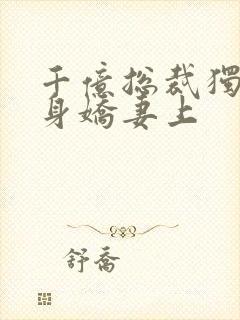 千億總裁獨
身嬌妻上
舒喬